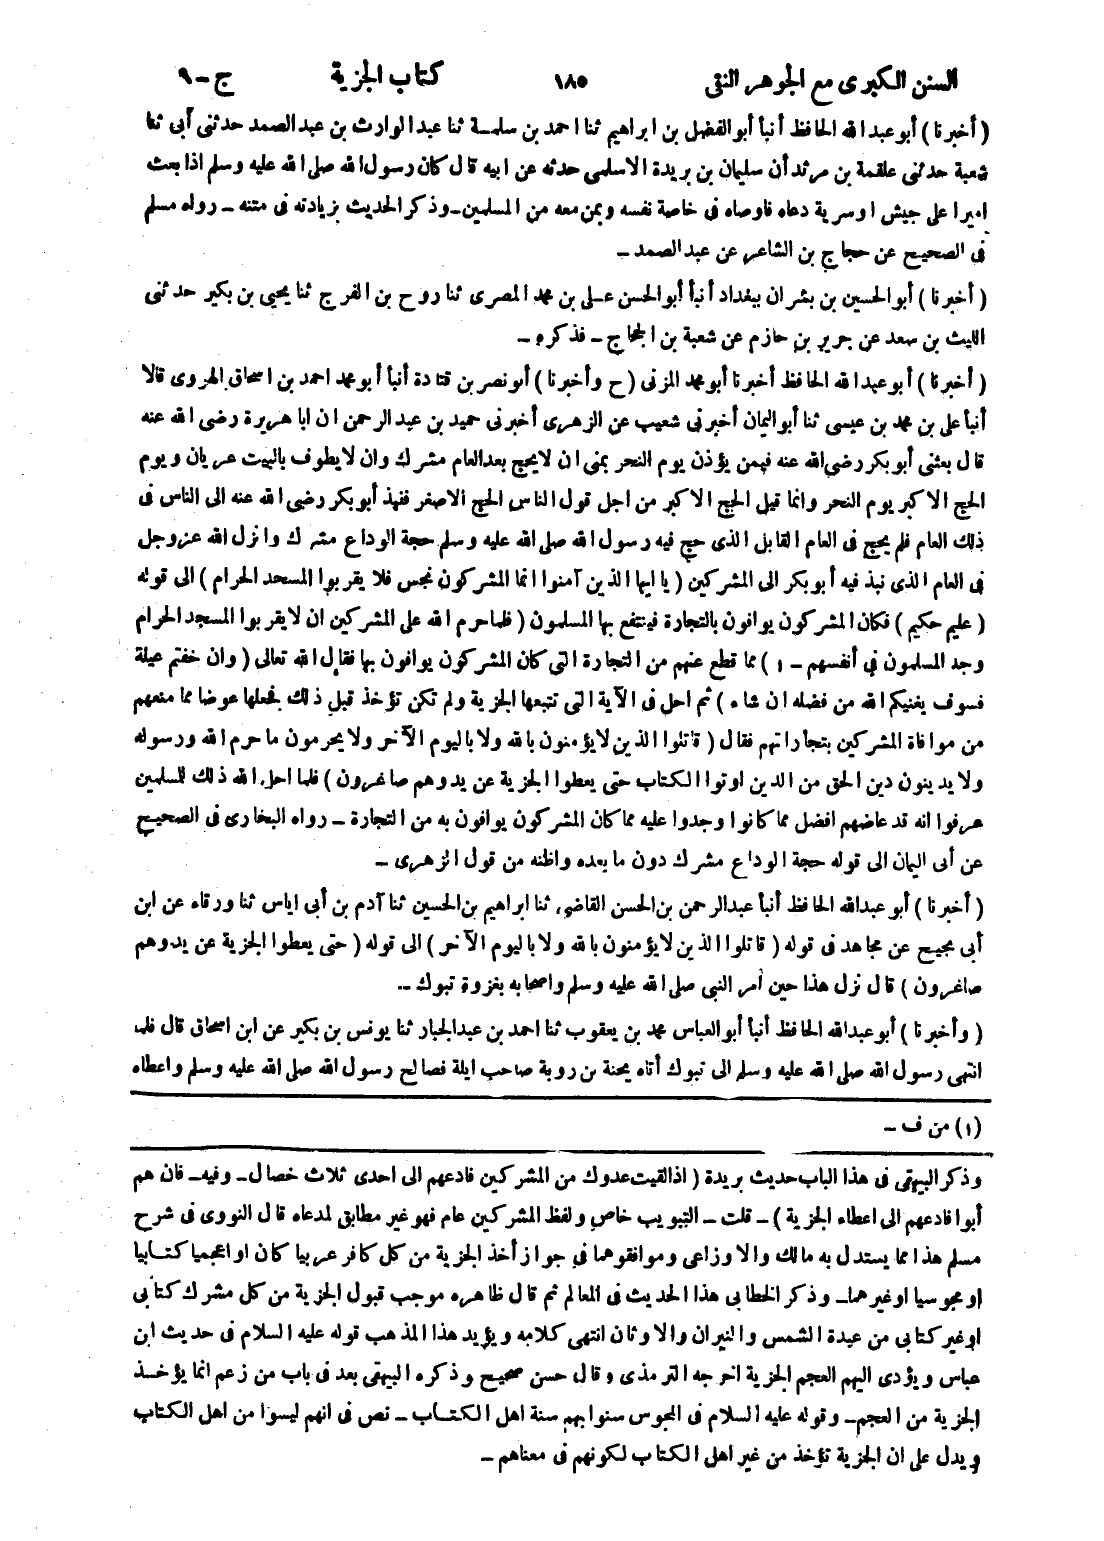 السنن الكبرى مع الجوهر النقى ١٨٥ كتاب الجزية ج-٩
( أخبرنا ) أبو عبد الله الحافظ أنبأ أبو الفضل بن ابراهيم ثنا احمد بن سلمة ثنا عبد الوارث بن عبد الصمد حدثنى أبى ثنا
شعبة حدثنى علقمة بن مرثد أن سليمان بن بريدة الاسلمى حدثه عن ابيه قال كان رسول الله صلى الله عليه وسلم اذا بعث
اميرا على جيش او سرية دعاه فاوصاه فى خاصة نفسه وبمن معه من المسلمين - وذكر الحديث بزيادته فى متنه - رواه مسلم
فى الصحيح عن حجاج بن الشاعر عن عبد الصمد -
( أخبرنا ) أبو الحسين بن بشران ببغداد أنبأ أبو الحسن على بن محمد المصرى ثنا روح بن الفرج ثنا يحيى بن بكير حدثنى
الليث بن سعد عن جرير بن حازم عن شعبة بن الحجاج - فذكره -
( أخبرنا ) أبو عبد الله الحافظ أخبرنا أبو محمد المزنى ( ح وأخبرنا ) أبو نصر بن قتادة أنبأ أبو محمد احمد بن اسحاق الهروى قالا
أنبأ على بن محمد بن عيسى ثنا أبو اليمان أخبرنى شعيب عن الزهرى أخبرنى حميد بن عبد الرحمن ان ابا هريرة رضى الله عنه
قال بعثنى أبو بكر رضى الله عنه فيمن يؤذن يوم النحر بمنى ان لا يحج بعد العام مشرك وان لا يطوف بالبيت عريان ويوم
الحج الاكبر يوم النحر وانما قيل الحج الاكبر من اجل قول الناس الحج الاصغر فنبذ أبو بكر رضى الله عنه الى الناس فى
ذلك العام فلم يحج فى العام القابل الذى حج فيه رسول الله صلى الله عليه وسلم حجة الوداع مشرك وانزل الله عز وجل
فى العام الذى نبذ فيه أبو بكر الى المشركين ( يا ايها الذين آمنوا انما المشركون نجس فلا يقربوا المسجد الحرام ) الى قوله
( عليم حكيم ) فكان المشركون يوافون بالتجارة فينتفع بها المسلمون ( فلما حرم الله على المشركين ان لا يقربوا المسجد الحرام
وجد المسلمون فى أنفسهم - ١ ) مما قطع عنهم من التجارة التى كان المشركون يوافون بها فقال الله تعالى ( وان خفتم عيلة
فسوف يغنيكم الله من فضله ان شاء ) ثم احل فى الآية التى تتبعها الجزية ولم تكن تؤخذ قبل ذلك فجعلها عوضا مما منعهم
من موافاة المشركين بتجاراتهم فقال ( قاتلوا الذين لا يؤمنون بالله ولا باليوم الآخر ولا يحرمون ما حرم الله ورسوله
ولا يدينون دين الحق من الذين اوتوا الكتاب حتى يعطوا الجزية عن يد وهم صاغرون ) فلما احل الله ذلك للمسلمين
عرفوا انه قد عاضهم افضل مما كانوا وجدوا عليه مما كان المشركون يوافون به من التجارة - رواه البخارى فى الصحيح
عن أبى اليمان الى قوله حجة الوداع مشرك دون ما بعده واظنه من قول الزهرى -
( أخبرنا ) أبو عبد الله الحافظ أنبأ عبد الرحمن بن الحسن القاضى، ثنا ابراهيم بن الحسين ثنا آدم بن أبى اياس ثنا ورقاء عن ابن
أبى نجيح عن مجاهد فى قوله ( قاتلوا الذين لا يؤمنون بالله ولا باليوم الآخر ) الى قوله ( حتى يعطوا الجزية عن يد وهم
صاغرون ) قال نزل هذا حين أمر النبى صلى الله عليه وسلم واصحابه بغزوة تبوك -
( وأخبرنا ) أبو عبد الله الحافظ أنبأ أبو العباس محمد بن يعقوب ثنا احمد بن عبد الجبار ثنا يونس بن بكير عن ابن اسحاق قال فلما
انتهى رسول الله صلى الله عليه وسلم الى تبوك أتاه يحنة بن روبة صاحب ايلة فصالح رسول الله صلى الله عليه وسلم واعطاه
(١) من ف -
وذكر البيهقى فى هذا الباب حديث بريدة ( اذا لقيت عدوك من المشركين فادعهم الى احدى ثلاث خصال - وفيه - فان هم
أبوا فادعهم الى اعطاء الجزية ) - قلت - التبويب خاص ولفظ المشركين عام فهو غير مطابق لمدعاه قال النووى فى شرح
مسلم هذا مما يستدل به مالك والاوزاعى وموافقوهما فى جواز أخذ الجزية من كل كافر عربيا كان او اعجميا كتابيا
او مجوسيا او غيرهما - وذكر الخطابى هذا الحديث فى المعالم ثم قال ظاهره موجب قبول الجزية من كل مشرك كتابى
او غير كتابى من عبدة الشمس والنيران والاوثان انتهى كلامه ويؤيد هذا المذهب قوله عليه السلام فى حديث ابن
عباس ويؤدى اليهم العجم الجزية اخرجه الترمذى وقال حسن صحيح وذكره البيهقى بعد فى باب من زعم انما يؤخذ
الجزية من العجم - وقوله عليه السلام فى المجوس سنوا بهم سنة اهل الكتاب - نص فى انهم ليسوا من اهل الكتاب
ويدل على ان الجزية تؤخذ من غير اهل الكتاب لكونهم فى معناهم -